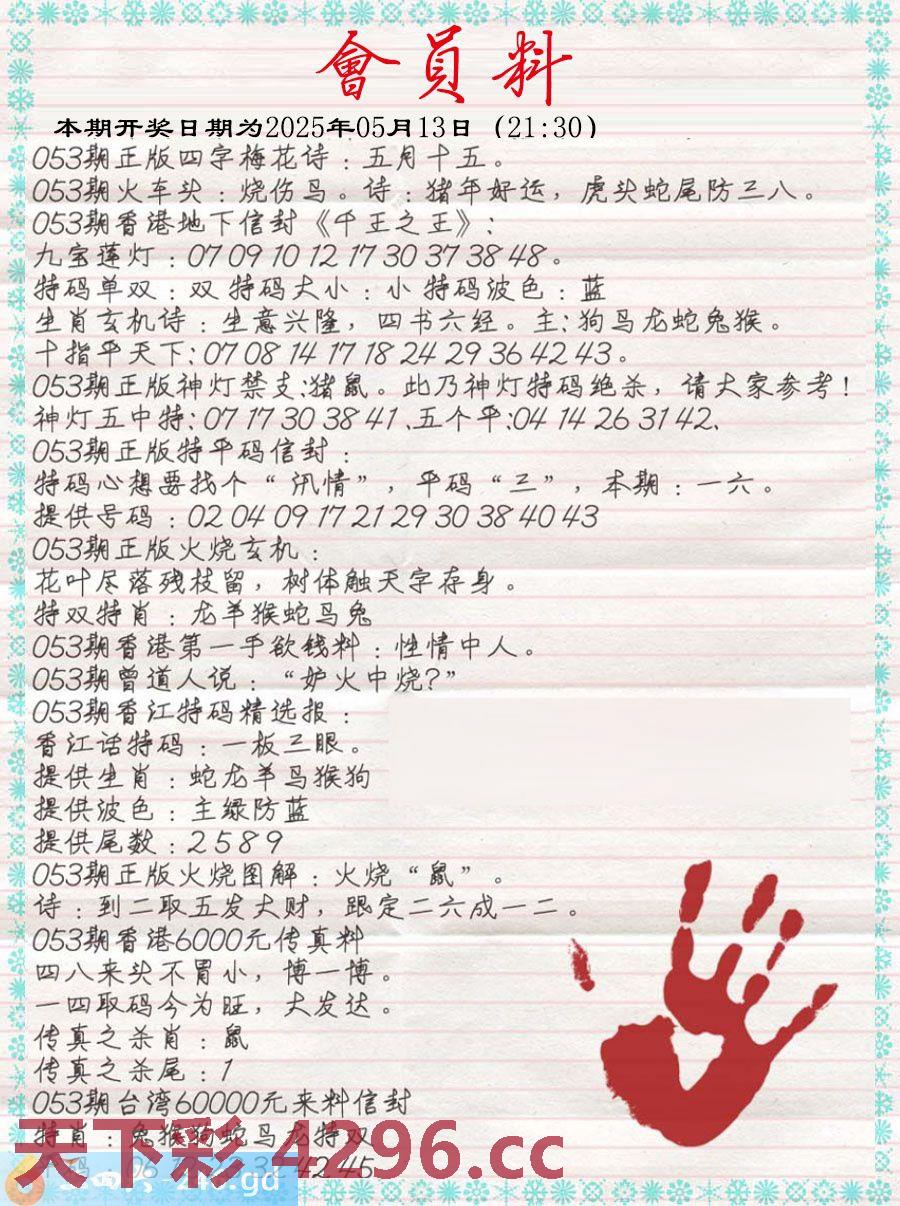 會員料
本期开奖日期为2025年05月13日（21:30）
053期正版四字梅花诗：五月十五。
053期火车头：烧伤鸟。诗：猪年好运，虎头蛇尾防三八。
053期香港地下信封《千王之王》：
九宝莲灯：07 09 10 12 17 30 37 38 48。
特码单双：双 特码大小：小 特码波色：蓝
生肖玄机诗：生意兴隆，四书六经。主：狗马龙蛇兔猴。
十指平天下：07 08 14 17 18 24 29 36 42 43。
053期正版神灯禁支：猪鼠。此乃神灯特码绝杀，请大家参考！
神灯五中特：07 17 30 38 41、五个平：04 14 26 31 42、
053期正版特平码信封：
特码心想要找个“汛情”，平码“三”，本期：一六。
提供号码：02 04 09 17 21 29 30 38 40 43
053期正版火烧玄机：
花叶尽落残枝留，树体触天字存身。
特双特肖：龙羊猴蛇马兔
053期香港第一手欲钱料：性情中人。
053期曾道人说：“妒火中烧？”
053期香江特码精选报：
香江话特码：一板三眼。
提供生肖：蛇龙羊马猴狗
提供波色：主绿防蓝
提供尾数：2 5 8 9
053期正版火烧图解：火烧“鼠”。
诗：到二取五发大财，跟定二六成一二。
053期香港6000元传真料
四八来头不胃小，博一博。
一四取码今为旺，大发达。
传真之杀肖：鼠
传真之杀尾：1
053期台湾60000元来料信封
特肖：兔猴狗蛇马龙特双
天下彩 4296.cc
42 45